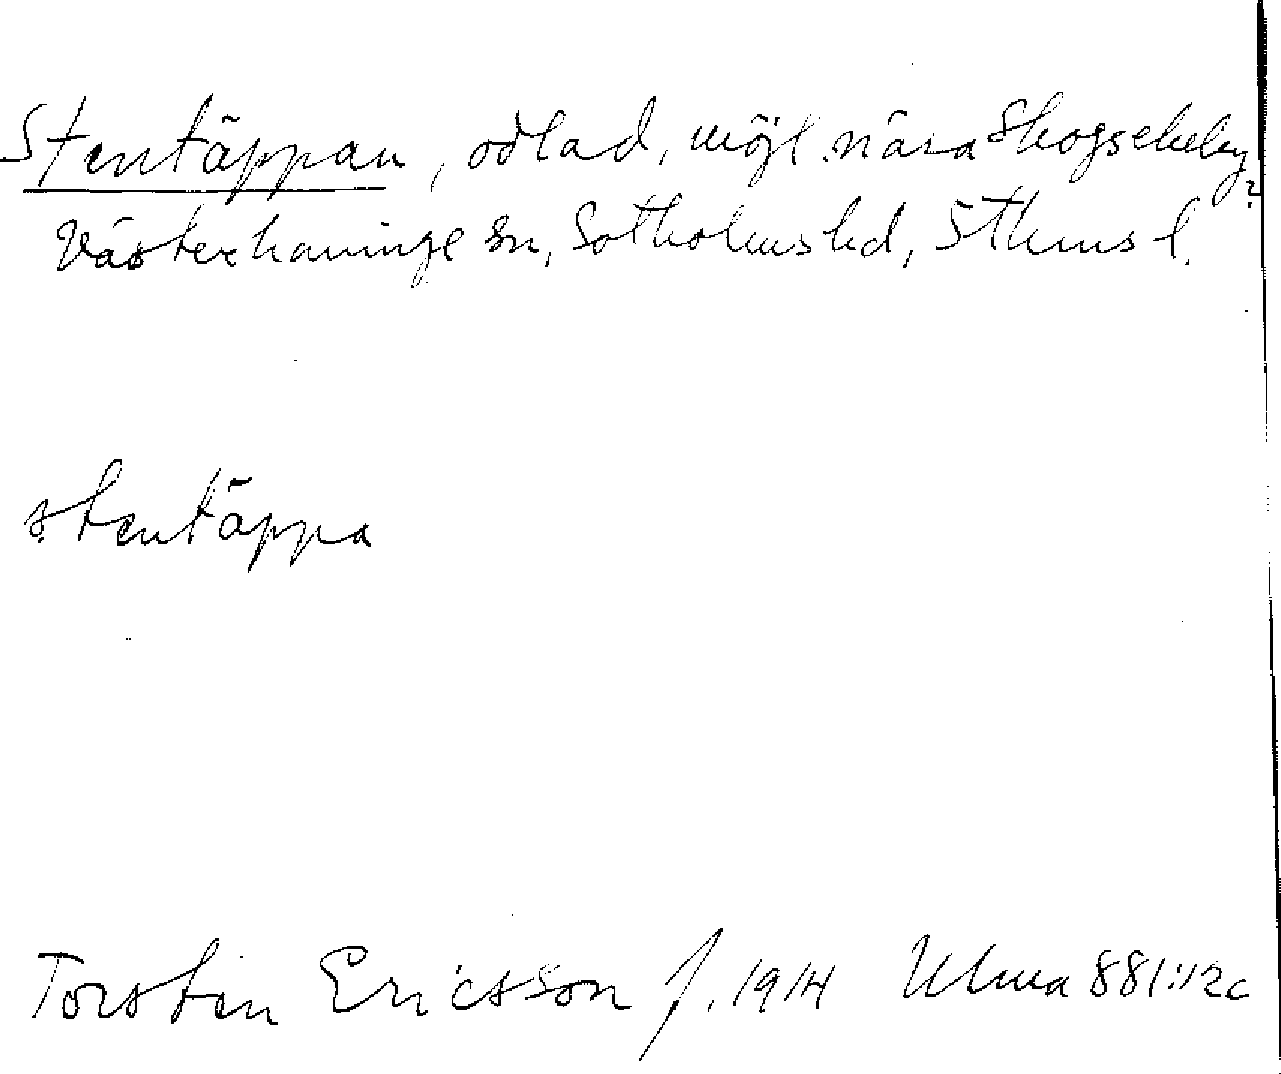 Stentäppan, odlad, möjl. nära Skogsekeby?
Västerhaninge sn, Sotholms hd, Sthms l.
stentäppa
Torsten Ericsson f. 1914 Ulma 881:12c